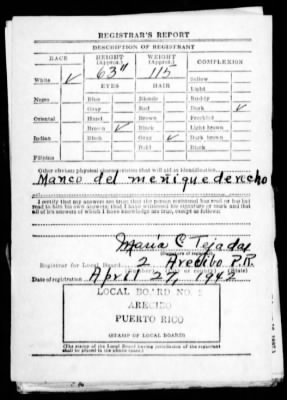 REGISTRAR'S REPORT
DESCRIPTION OF REGISTRANT
RACE HEIGHT (Approx.) WEIGHT (Approx.) COMPLEXION
White ✓ 63" 115 Sallow
EYES HAIR Light
Negro Blue Blonde Ruddy
Gray Red Dark ✓
Oriental Hazel Brown Freckled
Brown ✓ Black Light brown
Indian Black Gray ✓ Dark brown
Bald Black
Filipino
Other obvious physical characteristics that will aid in identification
Manco del meñique derecho
I certify that my answers are true; that the person registered has read or has had
read to him his own answers; that I have witnessed his signature or mark and that
all of his answers of which I have knowledge are true, except as follows:
Maria C Tejada
(Signature of registrar)
Registrar for Local Board 2 Arecibo P.R.
(Number) (City or county) (State)
Date of registration April 27, 1942
LOCAL BOARD NO.
ARECIBO
PUERTO RICO
(STAMP OF LOCAL BOARD)
(The stamp of the Local Board having jurisdiction of the registrant
shall be placed in the above space.)